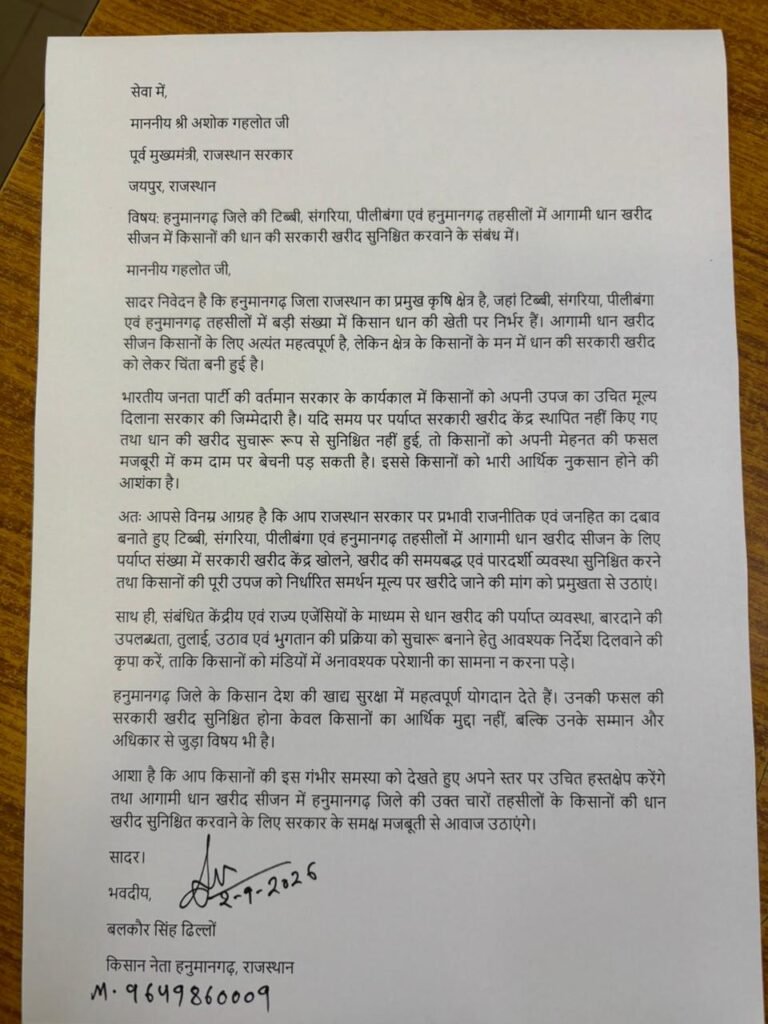 सेवा में,
माननीय श्री अशोक गहलोत जी
पूर्व मुख्यमंत्री, राजस्थान सरकार
जयपुर, राजस्थान
विषय: हनुमानगढ़ जिले की टिब्बी, संगरिया, पीलीबंगा एवं हनुमानगढ़ तहसीलों में आगामी धान खरीद
सीजन में किसानों की धान की सरकारी खरीद सुनिश्चित करवाने के संबंध में।
माननीय गहलोत जी,
सादर निवेदन है कि हनुमानगढ़ जिला राजस्थान का प्रमुख कृषि क्षेत्र है, जहां टिब्बी, संगरिया, पीलीबंगा
एवं हनुमानगढ़ तहसीलों में बड़ी संख्या में किसान धान की खेती पर निर्भर हैं। आगामी धान खरीद
सीजन किसानों के लिए अत्यंत महत्वपूर्ण है, लेकिन क्षेत्र के किसानों के मन में धान की सरकारी खरीद
को लेकर चिंता बनी हुई है।
भारतीय जनता पार्टी की वर्तमान सरकार के कार्यकाल में किसानों को अपनी उपज का उचित मूल्य
दिलाना सरकार की जिम्मेदारी है। यदि समय पर पर्याप्त सरकारी खरीद केंद्र स्थापित नहीं किए गए
तथा धान की खरीद सुचारू रूप से सुनिश्चित नहीं हुई, तो किसानों को अपनी मेहनत की फसल
मजबूरी में कम दाम पर बेचनी पड़ सकती है। इससे किसानों को भारी आर्थिक नुकसान होने की
आशंका है।
अतः आपसे विनम्र आग्रह है कि आप राजस्थान सरकार पर प्रभावी राजनीतिक एवं जनहित का दबाव
बनाते हुए टिब्बी, संगरिया, पीलीबंगा एवं हनुमानगढ़ तहसीलों में आगामी धान खरीद सीजन के लिए
पर्याप्त संख्या में सरकारी खरीद केंद्र खोलने, खरीद की समयबद्ध एवं पारदर्शी व्यवस्था सुनिश्चित करने
तथा किसानों की पूरी उपज को निर्धारित समर्थन मूल्य पर खरीदे जाने की मांग को प्रमुखता से उठाएं।
साथ ही, संबंधित केंद्रीय एवं राज्य एजेंसियों के माध्यम से धान खरीद की पर्याप्त व्यवस्था, बारदाने की
उपलब्धता, तुलाई, उठाव एवं भुगतान की प्रक्रिया को सुचारू बनाने हेतु आवश्यक निर्देश दिलवाने की
कृपा करें, ताकि किसानों को मंडियों में अनावश्यक परेशानी का सामना न करना पड़े।
हनुमानगढ़ जिले के किसान देश की खाद्य सुरक्षा में महत्वपूर्ण योगदान देते हैं। उनकी फसल की
सरकारी खरीद सुनिश्चित होना केवल किसानों का आर्थिक मुद्दा नहीं, बल्कि उनके सम्मान और
अधिकार से जुड़ा विषय भी है।
आशा है कि आप किसानों की इस गंभीर समस्या को देखते हुए अपने स्तर पर उचित हस्तक्षेप करेंगे
तथा आगामी धान खरीद सीजन में हनुमानगढ़ जिले की उक्त चारों तहसीलों के किसानों की धान
खरीद सुनिश्चित करवाने के लिए सरकार के समक्ष मजबूती से आवाज उठाएंगे।
सादर।
भवदीय,
2-9-2026
बलकौर सिंह ढिल्लों
किसान नेता हनुमानगढ़, राजस्थान
M. 9649860009